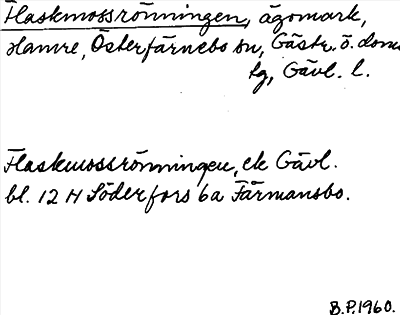 Flaskmossrönningen, ägomark,
Hamre, Österfärnebo sn, Gästr. ö. doms
tg, Gävl. l.
Flaskmossrönningen, ek Gävl.
bl. 12 H Söderfors 6a Färmansbo.
B.P. 1960.